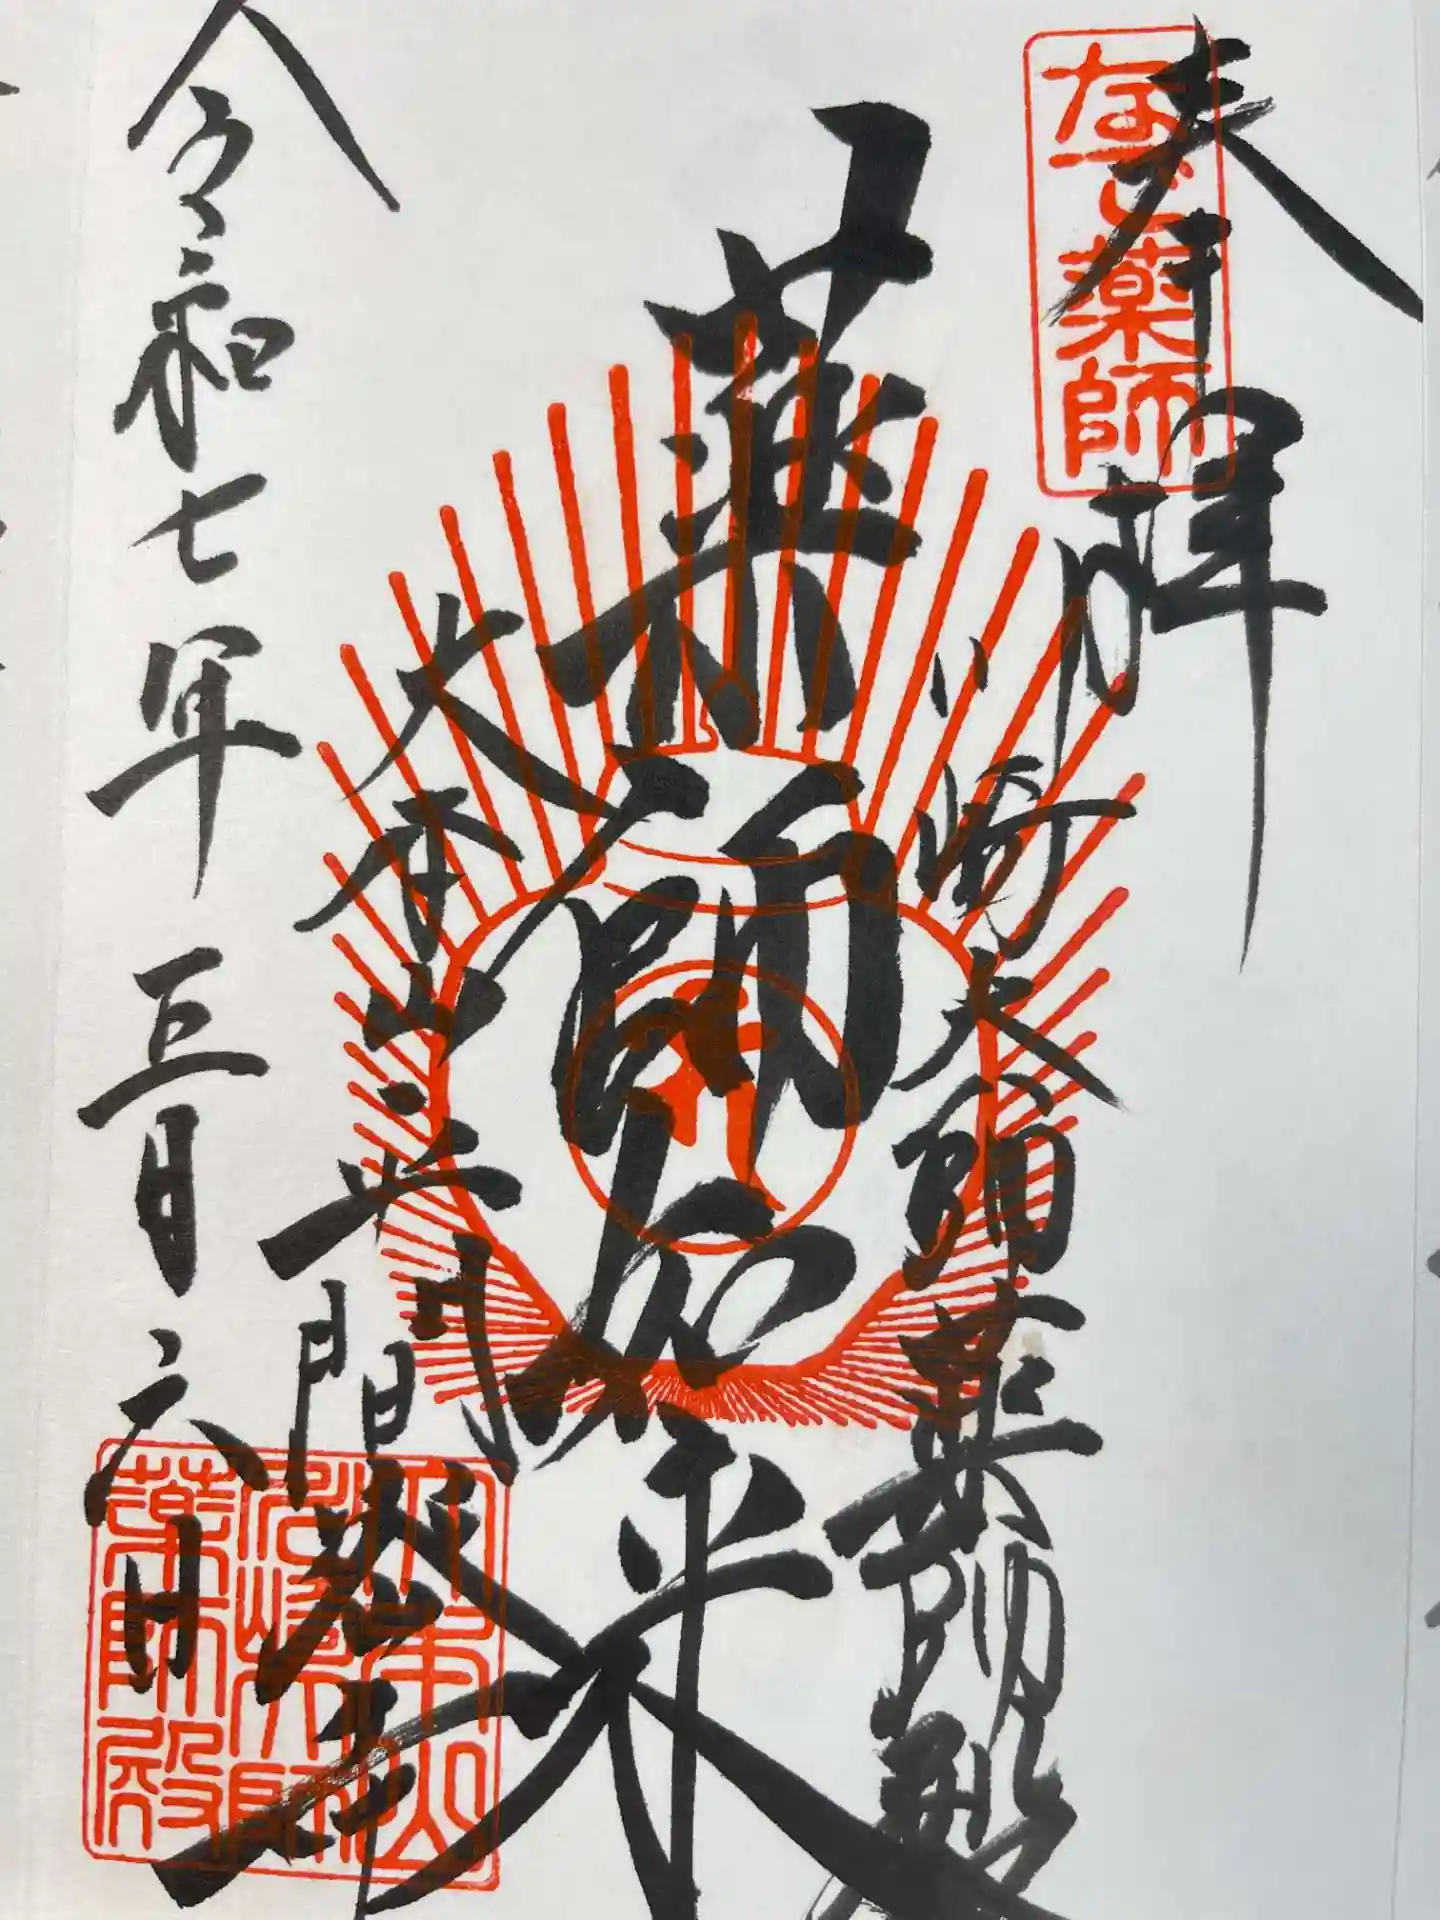 奉拝
なで薬師
川崎大師薬師殿
薬師如来
大本山平間寺
令和七年五月六日
大本山
川崎大師
薬師殿